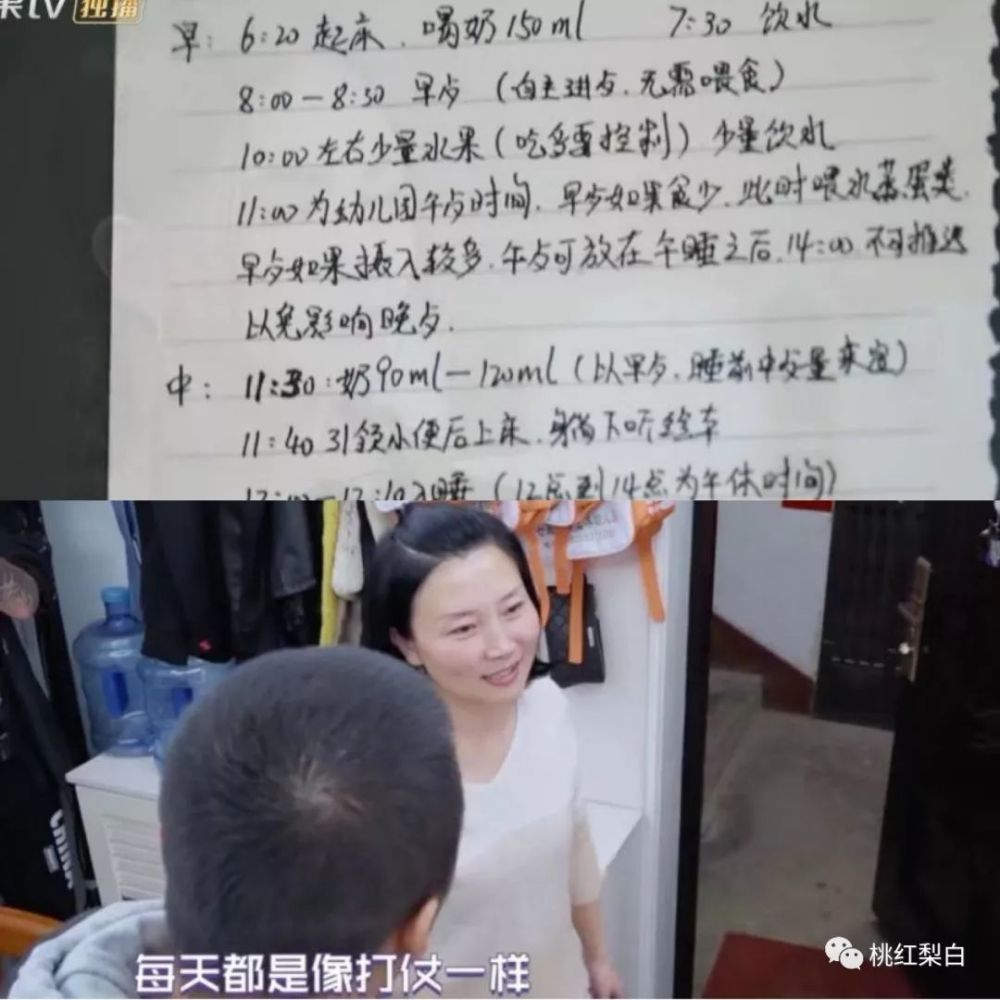 果TV 独播
早: 6:20 起床. 喝奶150ml 7:30 饮水
8:00—8:30 早点 (自主进点. 无需喂食)
10:00左右少量水果(吃多要控制) 少量饮水
11:00为幼儿园午点时间. 早点如果食少. 此时喂水蒸蛋类.
早点如果摄入较多. 午点可放在午睡之后. 14:00 不可推迟
以免影响晚点.
中: 11:30:奶90ml—120ml(以早点. 睡前中点量来定)
11:40 引领小便后上床. 躺下听绘本
12:00—12:10入睡 (12点到14点为午休时间)
每天都是像打仗一样
桃红梨白